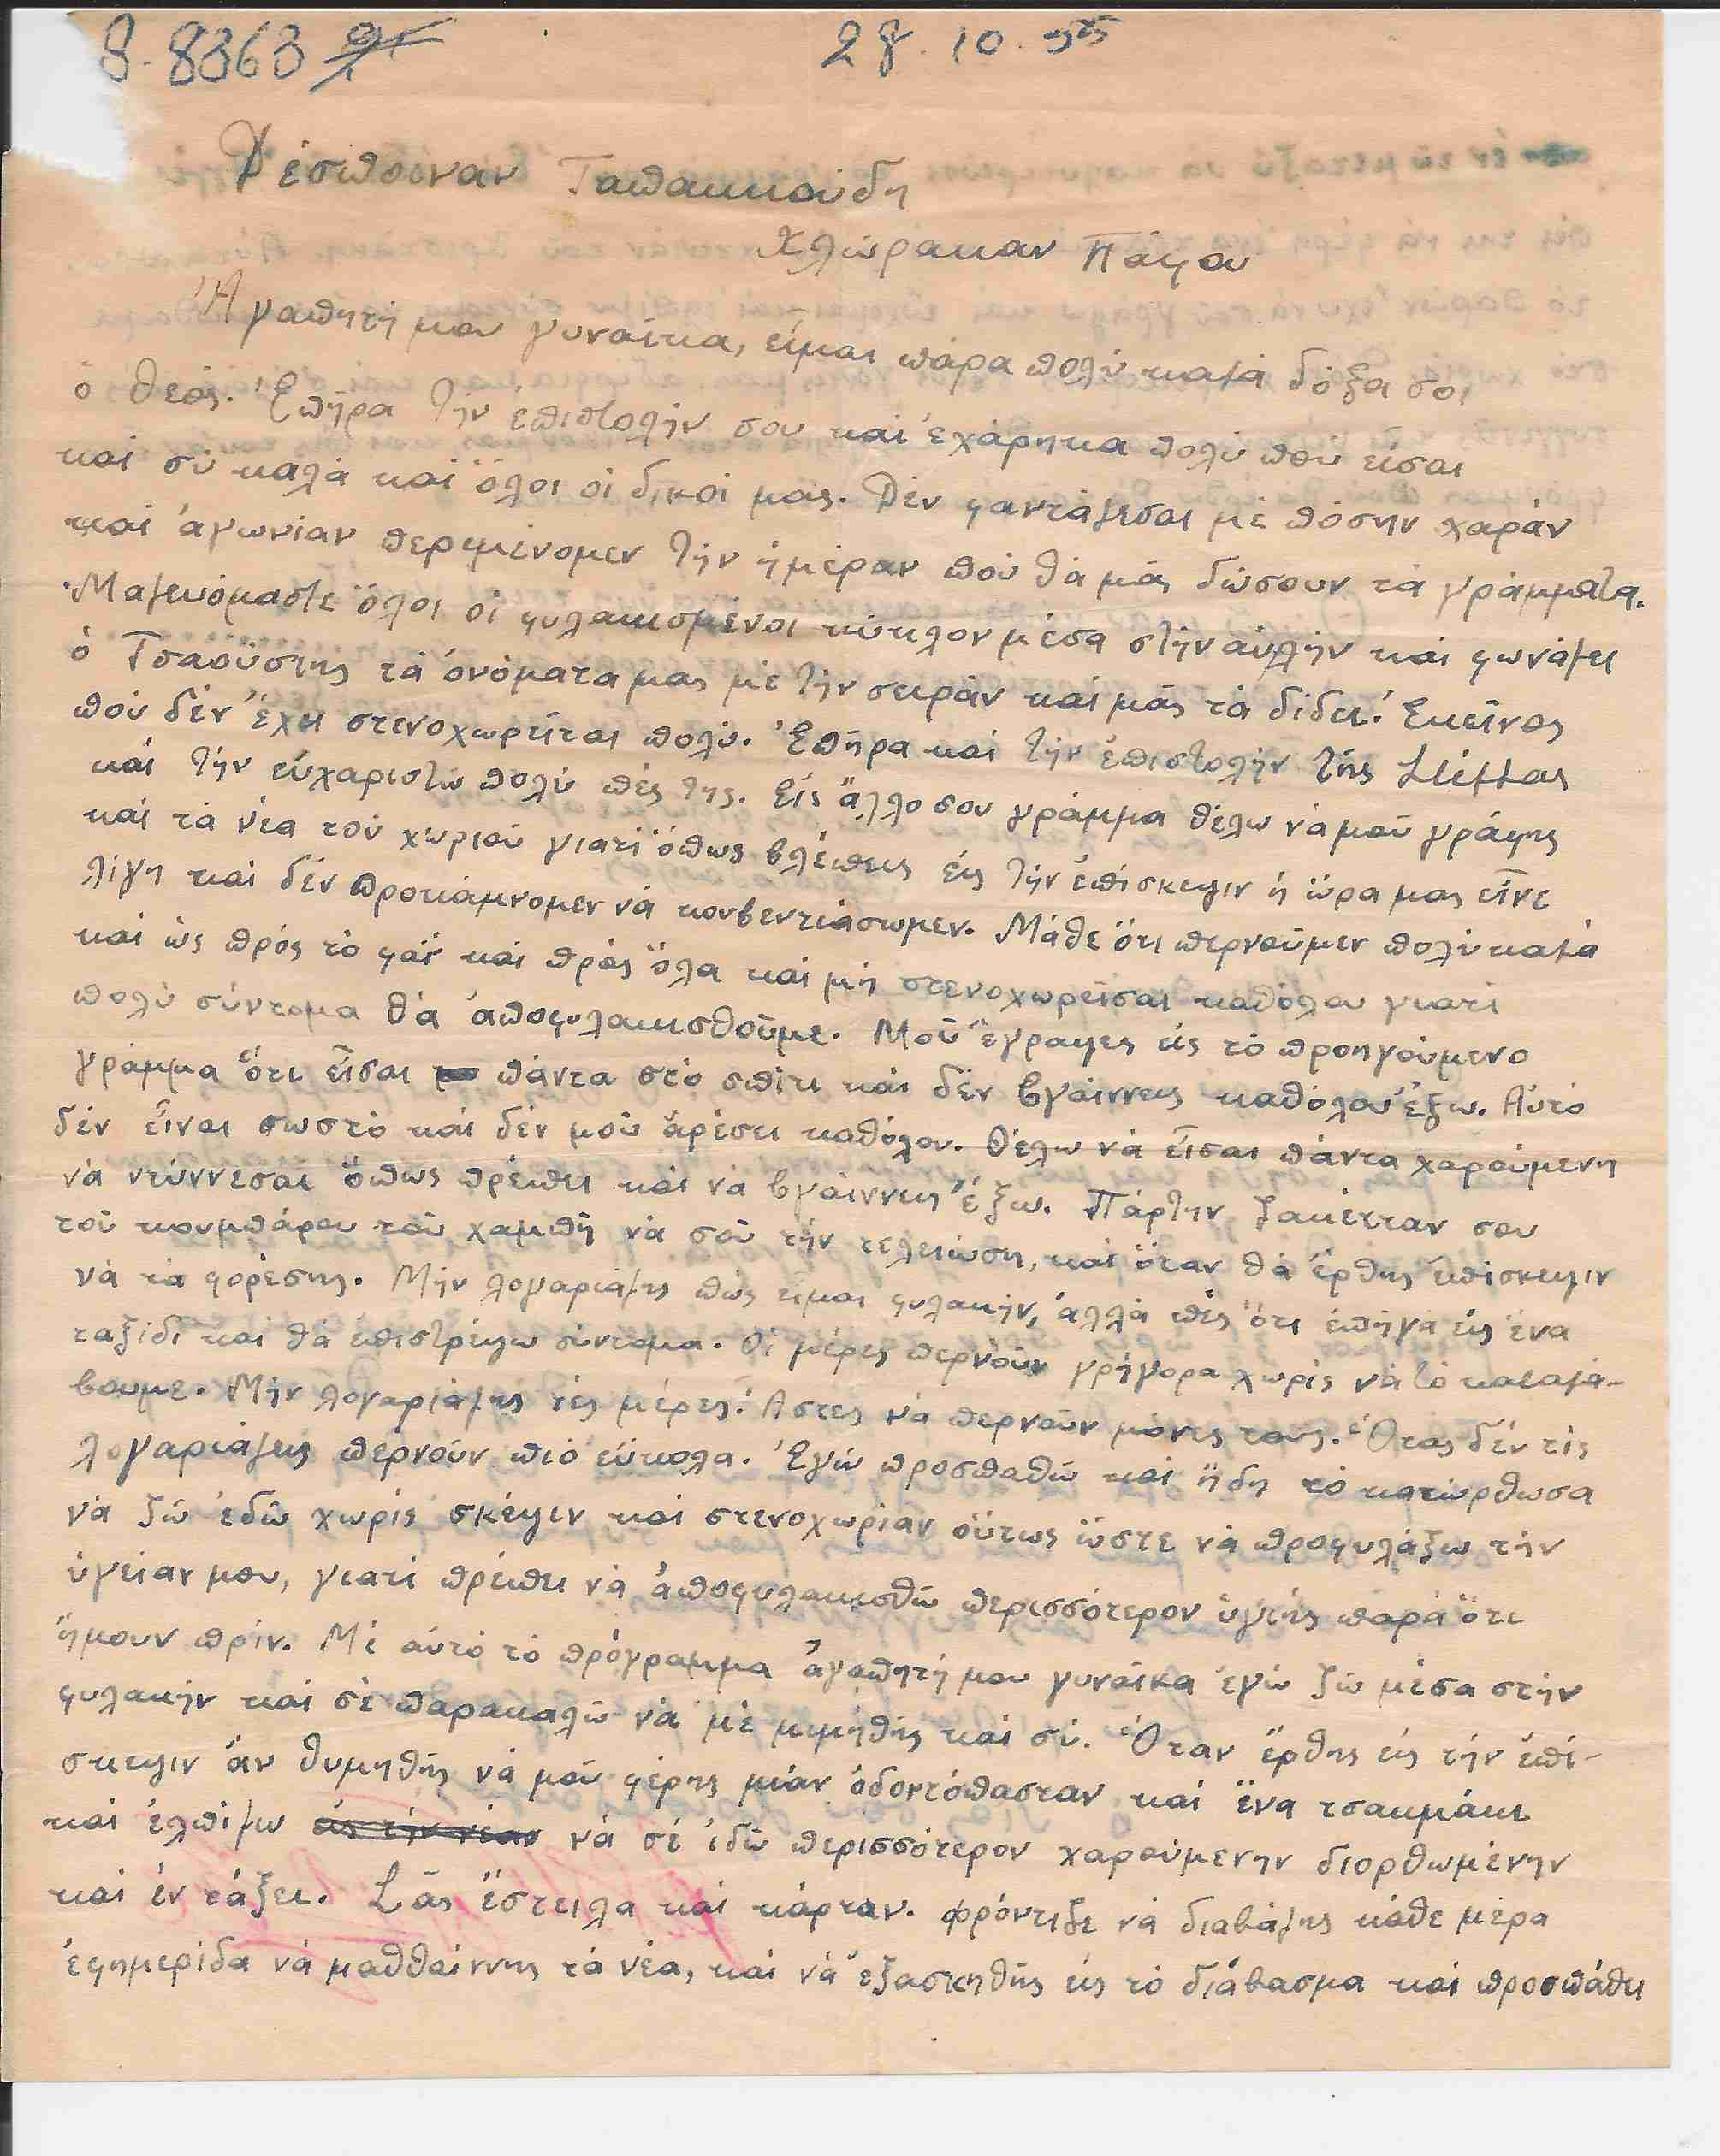 8. 8363
28. 10. 55
Δέσποιναν Ταπακκούδη
Χλώρακαν Πάφου
Ἀγαπητή μου γυναῖκα, εἶμαι πάρα πολύ καλά δόξα σοι
ὁ Θεός. Ἐπῆρα τήν ἐπιστολήν σου καί ἐχάρηκα πολύ πού εἶσαι
καί σύ καλά καί ὅλοι οἱ δικοί μας. Δέν φαντάζεσαι μέ πόσην χαράν
καί ἀγωνίαν περιμένομεν τήν ἡμέραν πού θά μᾶς δώσουν τά γράμματα.
Μαζευόμαστε ὅλοι οἱ φυλακισμένοι κύκλον μέσα στήν αὐλήν καί φωνάζει
ὁ Τσαούσιης τά ὀνόματα μας μέ τήν σειράν καί μᾶς τά δίδει. Ἐκεῖνος
πού δέν ἔχει στενοχωρεῖται πολύ. Ἐπῆρα καί τήν ἐπιστολήν τῆς
καί τήν εὐχαριστῶ πολύ πές της. Εἰς ἄλλο σου γράμμα θέλω νά μοῦ γράφης
καί τά νέα τοῦ χωριοῦ γιατί ὅπως βλέπεις εἰς τήν ἐπίσκεψιν ἡ ὥρα μας εἶνε
λίγη καί δέν προκάμνομεν νά κουβεντιάσωμεν. Μάθε ὅτι περνοῦμεν πολύ καλά
καί ὡς πρός τό φαΐ καί πρός ὅλα καί μή στενοχωρεῖσαι καθόλου γιατί
πολύ σύντομα θά ἀποφυλακισθοῦμε. Μοῦ ἔγραψες εἰς τό προηγούμενο
γράμμα ὅτι εἶσαι πάντα στό σπίτι καί δέν βγαίννεις καθόλου ἔξω. Αὐτό
δέν εἶναι σωστό καί δέν μοῦ ἀρέσει καθόλου. Θέλω νά εἶσαι πάντα χαρούμενη
νά ντύννεσαι ὅπως πρέπει καί νά βγαίννεις ἔξω. Πάρ τήν ζακέτταν σου
τοῦ κουμπάρου τοῦ χαμπῆ νά σοῦ τήν τελειώση, καί ὅταν θά ἔρθης ἐπίσκεψιν
νά τά φορέσης. Μήν λογαριάζης πώς εἶμαι φυλακήν, ἀλλά πές ὅτι ἐπῆγα εἰς ἕνα
ταξίδι καί θά ἐπιστρέψω σύντομα. Οἱ μέρες περνοῦν γρήγορα χωρίς νά τό καταλά-
βουμε. Μήν λογαριάζης τές μέρες. Ἄστες νά περνοῦν μόνες τους. Ὅταν δέν τίς
λογαριάζεις περνοῦν πιό εὔκολα. Ἐγώ προσπαθῶ καί ἤδη τό κατώρθωσα
νά ζῶ ἐδῶ χωρίς σκέψιν καί στενοχωρίαν οὕτως ὥστε νά προφυλάξω τήν
ὑγείαν μου, γιατί πρέπει νά ἀποφυλακισθῶ περισσότερον ὑγιής παρά ὅτι
ἤμουν πρίν. Μέ αὐτό τό πρόγραμμα ἀγαπητή μου γυναῖκα ἐγώ ζῶ μέσα στήν
φυλακήν καί σέ παρακαλῶ νά μέ μιμηθῆς καί σύ. Ὅταν ἔρθης εἰς τήν ἐπί-
σκεψιν ἄν θυμηθῆς νά μοῦ φέρης μίαν ὀδοντόπασταν καί ἕνα τσακμάκι
καί ἐλπίζω εἰς τήν νέαν νά σέ ἰδῶ περισσότερον χαρούμενην διορθωμένην
καί ἐν τάξει. Σᾶς ἔστειλα καί κάρταν. Φρόντιζε νά διαβάζης κάθε μέρα
ἐφημερίδα νά μαθθαίννης τά νέα, καί νά ἐξασκηθῆς εἰς τό διάβασμα καί προσπάθει